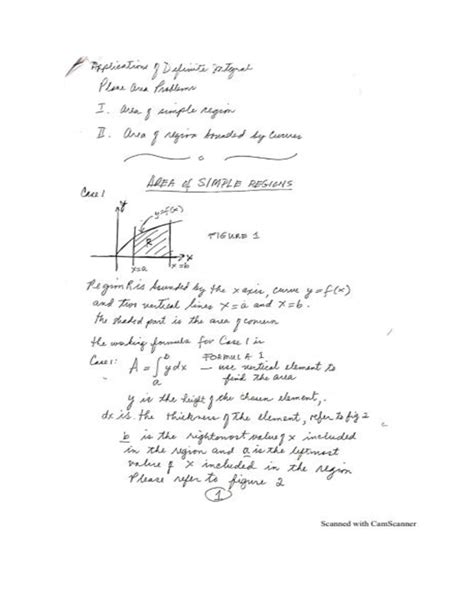 Applications of Definite integral
Plane Area Problems
I. Area of simple region
II. Area of region bounded by curves
AREA OF SIMPLE REGIONS
Case 1
y
y=f(x)
R
FIGURE 1
x
x=a
x=b
Region R is bounded by the x axis, curve y=f(x)
and two vertical lines x=a and x=b.
The shaded part is the area of concern
the working formula for Case 1 is
FORMULA 1
Case 1: A = ∫ₐᵇ y dx — use vertical element to
find the area
y is the height of the chosen element,
dx is the thickness of the element, refer to fig 2
b is the rightmost value of x included
in the region and a is the leftmost
value of x included in the region
Please refer to figure 2
1
Scanned with CamScanner